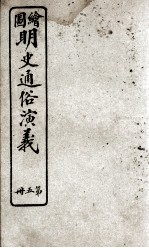 繪圖
明史通俗演義
第五冊